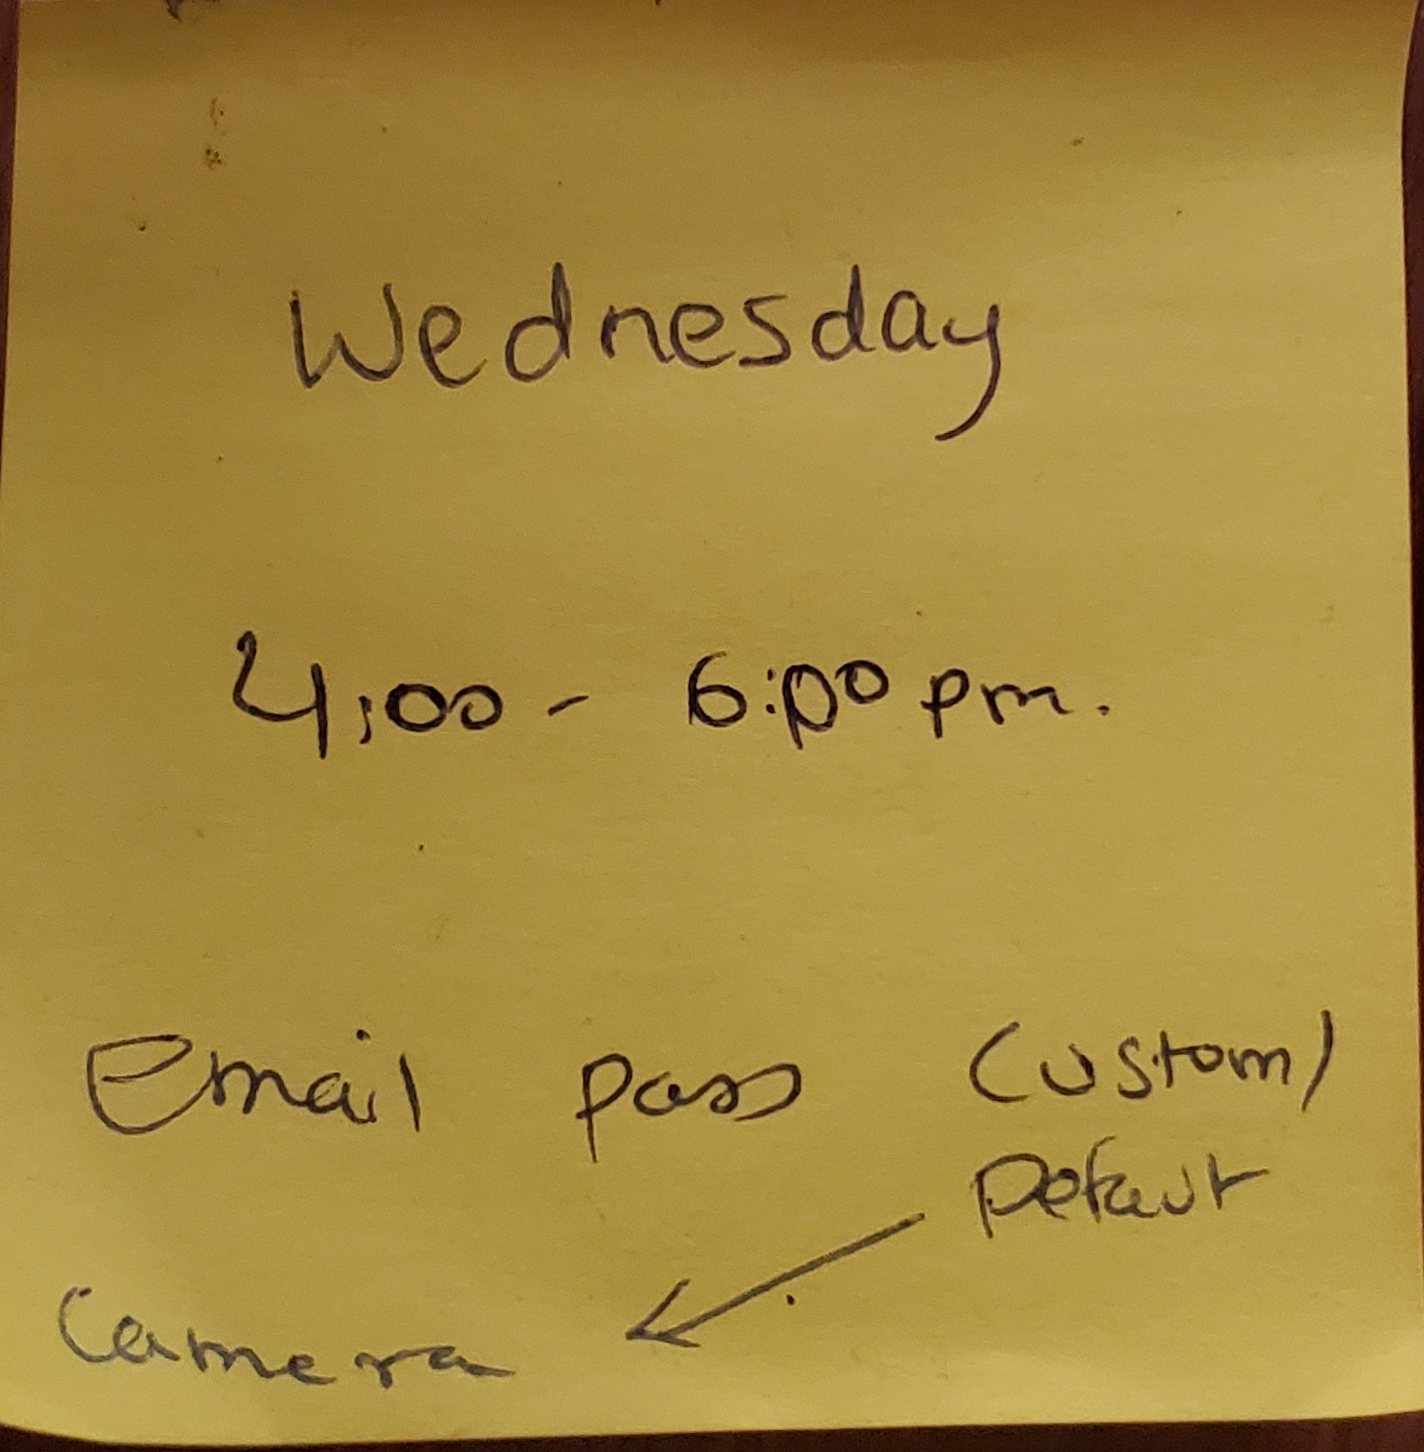 Wednesday
4:00 - 6:00 pm.
Email pass Custom/
Defaut
Camera